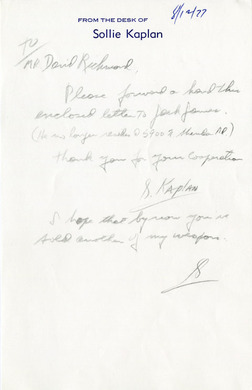 FROM THE DESK OF
Sollie Kaplan
8/12/77
TO
Mr. David Richmond,
Please forward a hand this
enclosed letter to Jack James.
(He no longer resides @ 5900 Rd)
thank you for your Cooperation
S. Kaplan
I hope that by now you
sold another of my weapons.
S